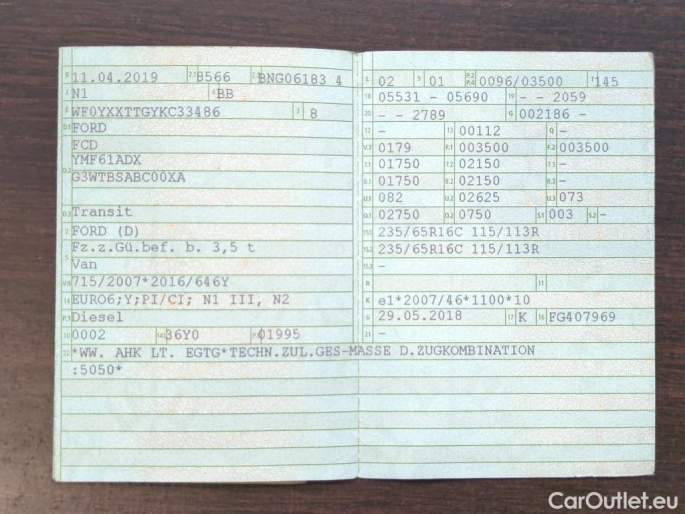 B 11.04.2019 2.1 8566 2.2 BNG06183 4
J N1 4 BB
E WF0YXXTTGYKC33486 3 8
D.1 FORD
FCD
D.2 YMF61ADX
G3WTBSABC00XA
D.3 Transit
2 FORD (D)
5 Fz.z.Gü.bef. b. 3,5 t
Van
V.9 715/2007*2016/646Y
14 EURO6;Y;PI/CI; N1 III, N2
P.3 Diesel
10 0002 14.1 36Y0 P.1 01995
22 *WW. AHK LT. EGTG*TECHN.ZUL.GES-MASSE D.ZUGKOMBINATION
:5050*
L 02 9 01 P.2 P.4 0096/03500 T 145
18 05531 - 05690 19 - - 2059
20 - - 2789 G 002186 -
12 - 13 00112 Q -
V.7 0179 F.1 003500 F.2 003500
7.1 01750 7.2 02150 7.3 -
8.1 01750 8.2 02150 8.3 -
U.1 082 U.2 02625 U.3 073
O.1 02750 O.2 0750 S.1 003 S.2 -
15.1 235/65R16C 115/113R
15.2 235/65R16C 115/113R
15.3 -
R 11
K e1*2007/46*1100*10
6 29.05.2018 17 K 16 FG407969
21 -
CarOutlet.eu